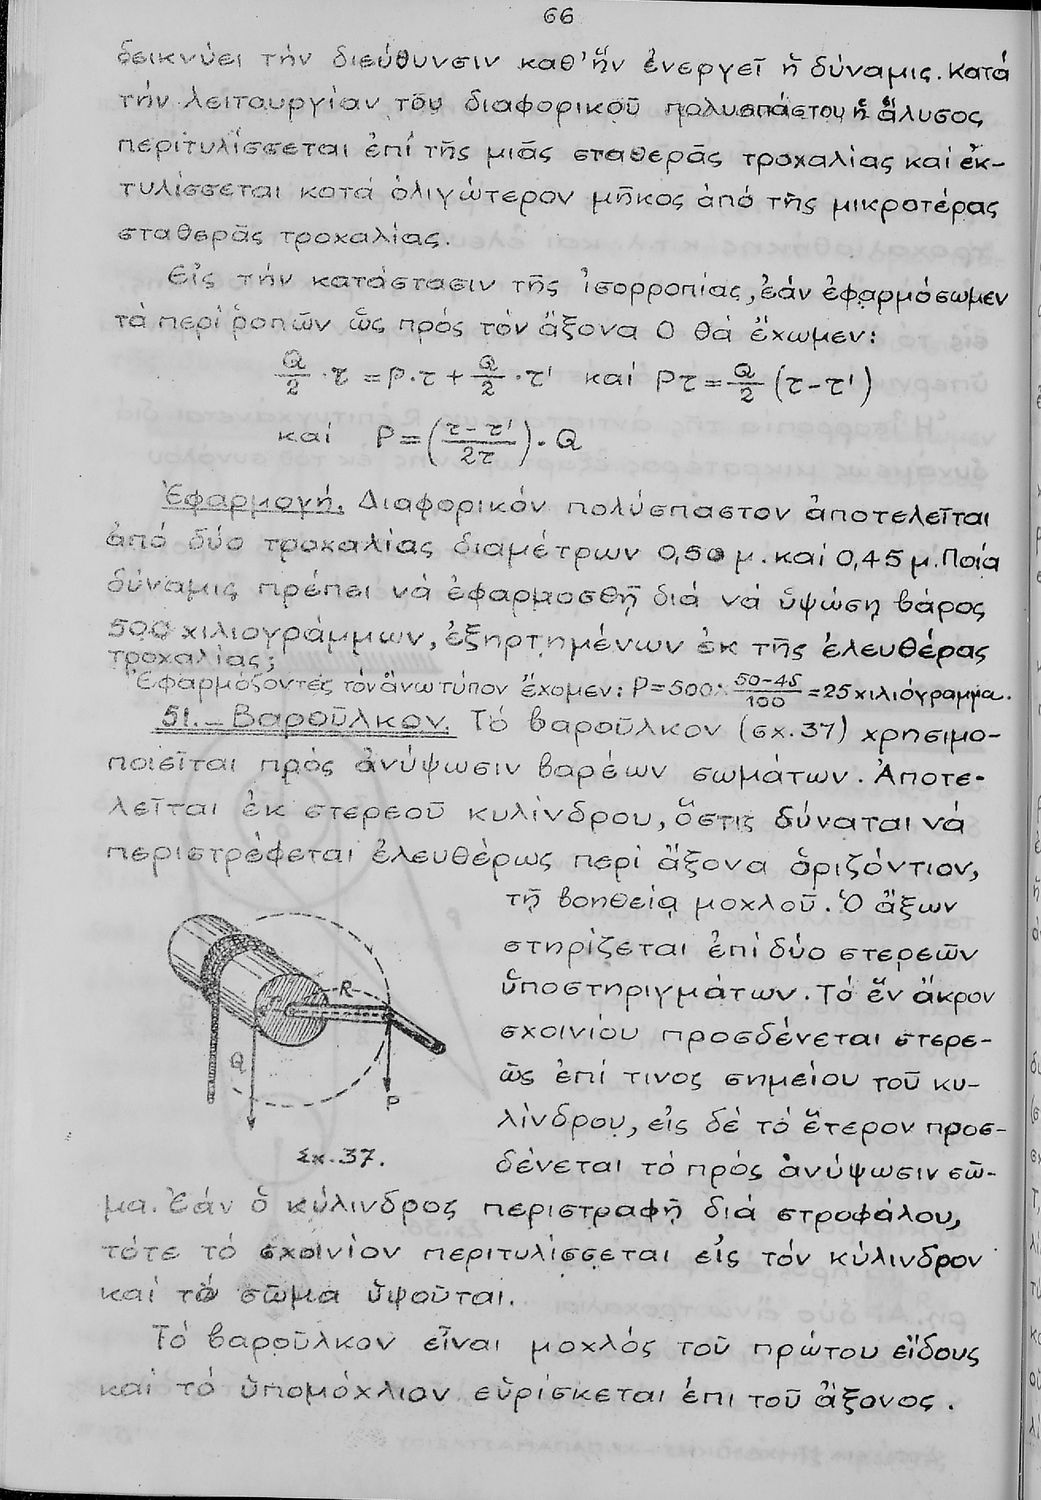 66
δεικνύει τήν διεύθυνσιν καθ' ἥν ἐνεργεῖ ἡ δύναμις. Κατά
τήν λειτουργίαν τοῦ διαφορικοῦ πολυσπάστου ἡ ἅλυσος
περιτυλίσσεται ἐπί τῆς μιᾶς σταθερᾶς τροχαλίας καί ἐκ-
τυλίσσεται κατά ὀλιγώτερον μῆκος ἀπό τῆς μικροτέρας
σταθερᾶς τροχαλίας.
Εἰς τήν κατάστασιν τῆς ἰσορροπίας, ἐάν ἐφαρμόσωμεν
τά περί ῥοπῶν ὡς πρός τόν ἄξονα Ο θά ἔχωμεν:
Q/2 · τ = P · τ + Q/2 · τ' καί Pτ = Q/2 (τ - τ')
καί P = (τ - τ'/2τ) · Q
Ἐφαρμογή. Διαφορικόν πολύσπαστον ἀποτελεῖται
ἀπό δύο τροχαλίας διαμέτρων 0,50 μ. καί 0,45 μ. Ποία
δύναμις πρέπει νά ἐφαρμοσθῇ διά νά ὑψώσῃ βάρος
500 χιλιογράμμων, ἐξηρτημένων ἐκ τῆς ἐλευθέρας
τροχαλίας;
Ἐφαρμόζοντες τόν ἄνω τύπον ἔχομεν: P = 500 · 50-45/100 = 25 χιλιόγραμμα.
51. – Βαροῦλκον. Τό βαροῦλκον (σχ. 37) χρησιμο-
ποιεῖται πρός ἀνύψωσιν βαρέων σωμάτων. Ἀποτε-
λεῖται ἐκ στερεοῦ κυλίνδρου, ὅστις δύναται νά
περιστρέφεται ἐλευθέρως περί ἄξονα ὁριζόντιον,
τῇ βοηθείᾳ μοχλοῦ. Ὁ ἄξων
στηρίζεται ἐπί δύο στερεῶν
ὑποστηριγμάτων. Τό ἕν ἄκρον
σχοινίου προσδένεται στερε-
ῶς ἐπί τινος σημείου τοῦ κυ-
λίνδρου, εἰς δέ τό ἕτερον προσ-
δένεται τό πρός ἀνύψωσιν σῶ-
R
r
Q
P
Σχ. 37.
μα. Ἐάν ὁ κύλινδρος περιστραφῇ διά στροφάλου,
τότε τό σχοινίον περιτυλίσσεται εἰς τόν κύλινδρον
καί τό σῶμα ὑψοῦται.
Τό βαροῦλκον εἶναι μοχλός τοῦ πρώτου εἴδους
καί τό ὑπομόχλιον εὑρίσκεται ἐπι τοῦ ἄξονος.